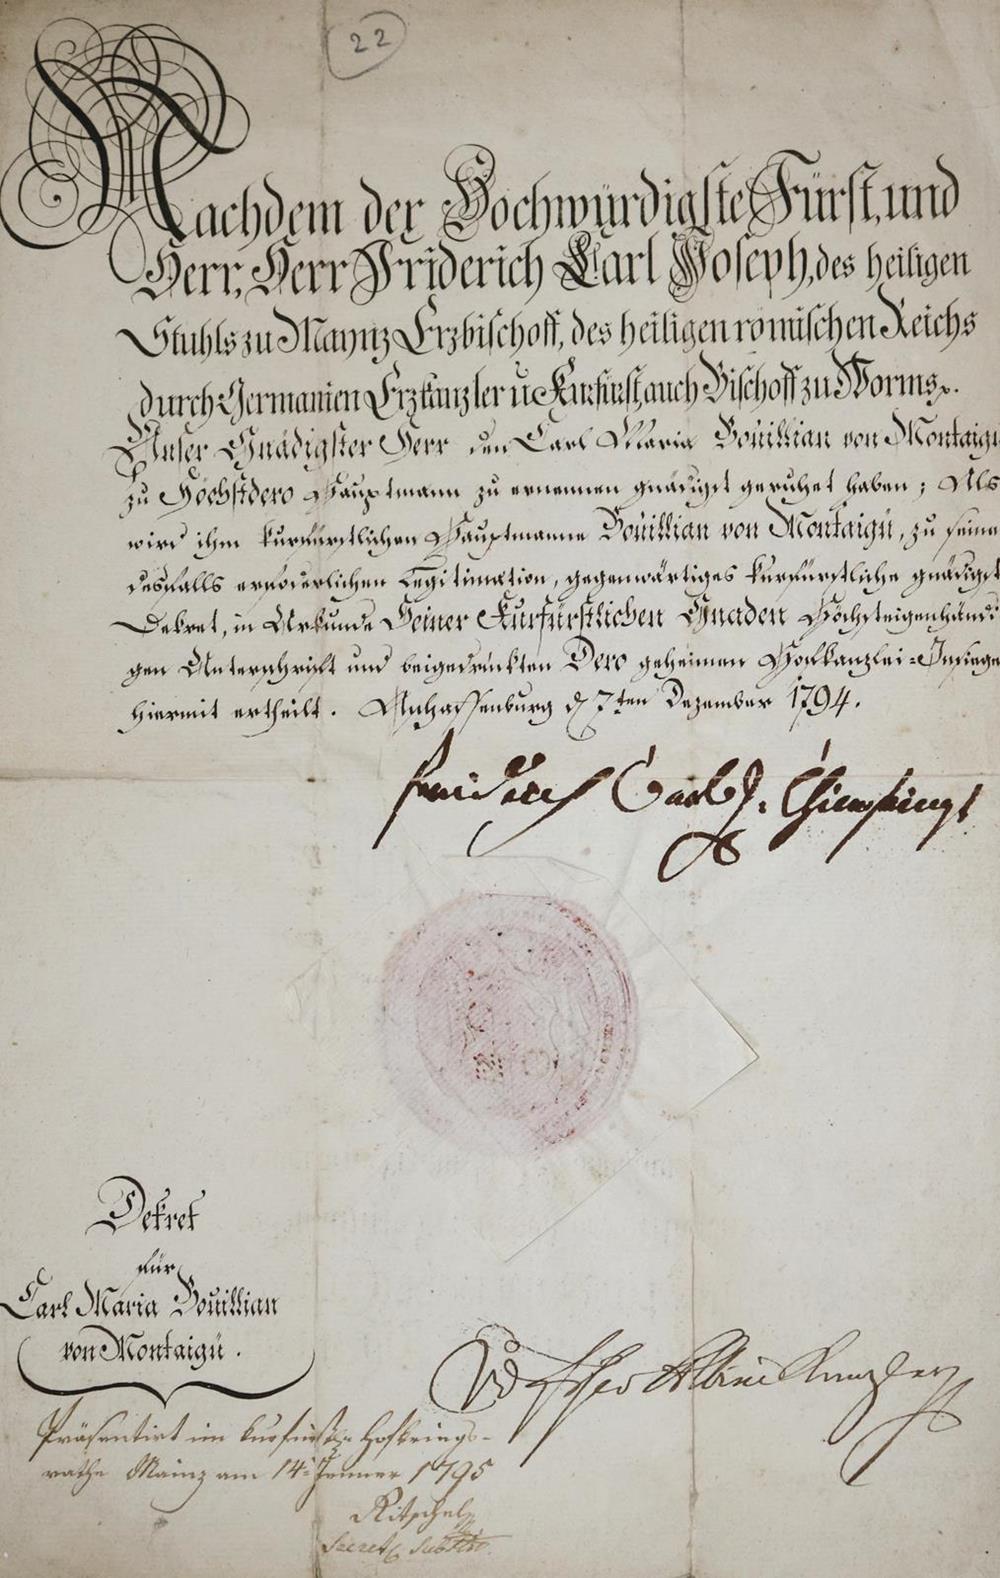 22
Nachdem der Hochwürdigste Fürst, und
Herr, Herr Friderich Carl Joseph, des heiligen
Stuhls zu Maynz Erzbischoff, des heiligen römischen Reichs
durch Germanien Erzkanzler u Kurfürst, auch Bischoff zu Worms
Unser Gnädigster Herr den Carl Maria Bouillian von Montaigu
zu Höchstdero Hauptmann zu ernennen gnädigst geruhet haben; Als
wird ihm kurfürstlichen Hauptmanne Bouillian von Montaigü, zu seine
desfalls erfoderlichen Legitimation, gegenwärtiges kurfürstliche gnädigst
Dekret, in Urkunde Seiner Kurfürstlichen Gnaden Höchsteigenhändi
gen Unterschrift und beigedrückten Dero geheimen Hofkanzlei-Insiege
hiermit ertheilt. Aschaffenburg d 7ten Dezember 1794.
Friderich Carl J. Churfürst
Dekret
für
Carl Maria Bouillian
von Montaigü.
Vdt Albini Kanzler
Präsentirt im kurfürstl. Hofkriegs-
rathe Mainz am 14. Jenner 1795
Ritschel
Secret